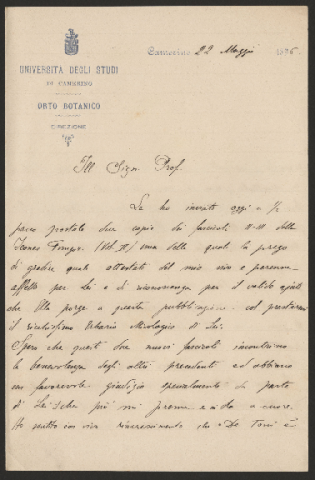 UNIVERSITÀ DEGLI STUDI
DI CAMERINO
ORTO BOTANICO
DIREZIONE
Camerino 22 Maggio 1896
Ill Sign. Prof.
Le ho inviato oggi a 1/2
pacco postale due copie di fascicoli della
Icones Fungor. (Vol. II) una delle quali La prego
di gradire quale attestato del mio vivo e perenne
affetto per Lei e di riconoscenza per il valido ajuto
che Ella porge a questa pubblicazione col prestarmi
il ricchissimo Erbario Micologico di Lei.
Spero che questi due nuovi fascicoli incontrino
la benevolenza degli altri precedenti ed abbiano
un favorevole giudizio specialmente da parte
di Lei che più mi preme e sta a cuore.
Ho sentito con vivo rincrescimento che De Toni è